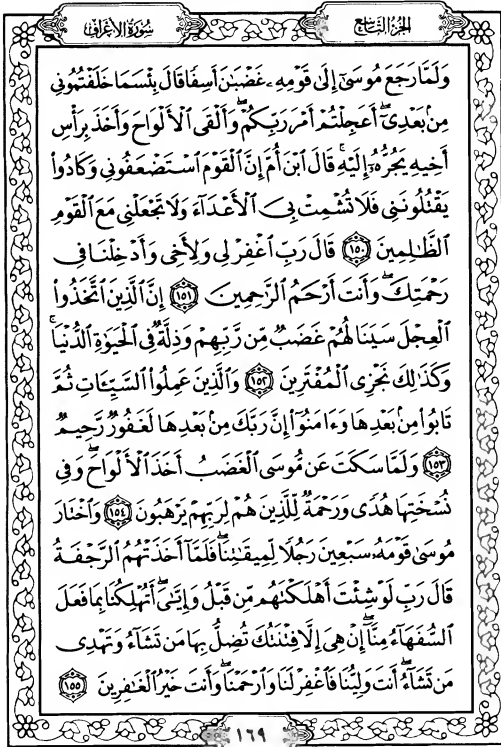 سُورَةُ الْأَعْرَافِ
الجُزءُ التَّاسِعُ
وَلَمَّا رَجَعَ مُوسَىٰٓ إِلَىٰ قَوْمِهِۦ غَضْبَٰنَ أَسِفًا قَالَ بِئْسَمَا خَلَفْتُمُونِى
مِنۢ بَعْدِىٓ ۖ أَعَجِلْتُمْ أَمْرَ رَبِّكُمْ ۖ وَأَلْقَى ٱلْأَلْوَاحَ وَأَخَذَ بِرَأْسِ
أَخِيهِ يَجُرُّهُۥٓ إِلَيْهِ ۚ قَالَ ٱبْنَ أُمَّ إِنَّ ٱلْقَوْمَ ٱسْتَضْعَفُونِى وَكَادُوا۟
يَقْتُلُونَنِى فَلَا تُشْمِتْ بِىَ ٱلْأَعْدَآءَ وَلَا تَجْعَلْنِى مَعَ ٱلْقَوْمِ
ٱلظَّٰلِمِينَ ١٥٠ قَالَ رَبِّ ٱغْفِرْ لِى وَلِأَخِى وَأَدْخِلْنَا فِى
رَحْمَتِكَ ۖ وَأَنتَ أَرْحَمُ ٱلرَّٰحِمِينَ ١٥١ إِنَّ ٱلَّذِينَ ٱتَّخَذُوا۟
ٱلْعِجْلَ سَيَنَالُهُمْ غَضَبٌ مِّن رَّبِّهِمْ وَذِلَّةٌ فِى ٱلْحَيَوٰةِ ٱلدُّنْيَا ۚ
وَكَذَٰلِكَ نَجْزِى ٱلْمُفْتَرِينَ ١٥٢ وَٱلَّذِينَ عَمِلُوا۟ ٱلسَّيِّـَٔاتِ ثُمَّ
تَابُوا۟ مِنۢ بَعْدِهَا وَءَامَنُوٓا۟ إِنَّ رَبَّكَ مِنۢ بَعْدِهَا لَغَفُورٌ رَّحِيمٌ
١٥٣ وَلَمَّا سَكَتَ عَن مُّوسَى ٱلْغَضَبُ أَخَذَ ٱلْأَلْوَاحَ ۖ وَفِى
نُسْخَتِهَا هُدًى وَرَحْمَةٌ لِّلَّذِينَ هُمْ لِرَبِّهِمْ يَرْهَبُونَ ١٥٤ وَٱخْتَارَ
مُوسَىٰ قَوْمَهُۥ سَبْعِينَ رَجُلًا لِّمِيقَٰتِنَا ۖ فَلَمَّآ أَخَذَتْهُمُ ٱلرَّجْفَةُ
قَالَ رَبِّ لَوْ شِئْتَ أَهْلَكْتَهُم مِّن قَبْلُ وَإِيَّٰىَ ۖ أَتُهْلِكُنَا بِمَا فَعَلَ
ٱلسُّفَهَآءُ مِنَّآ ۖ إِنْ هِىَ إِلَّا فِتْنَتُكَ تُضِلُّ بِهَا مَن تَشَآءُ وَتَهْدِى
مَن تَشَآءُ ۖ أَنتَ وَلِيُّنَا فَٱغْفِرْ لَنَا وَٱرْحَمْنَا ۖ وَأَنتَ خَيْرُ ٱلْغَٰفِرِينَ ١٥٥
١٦٩